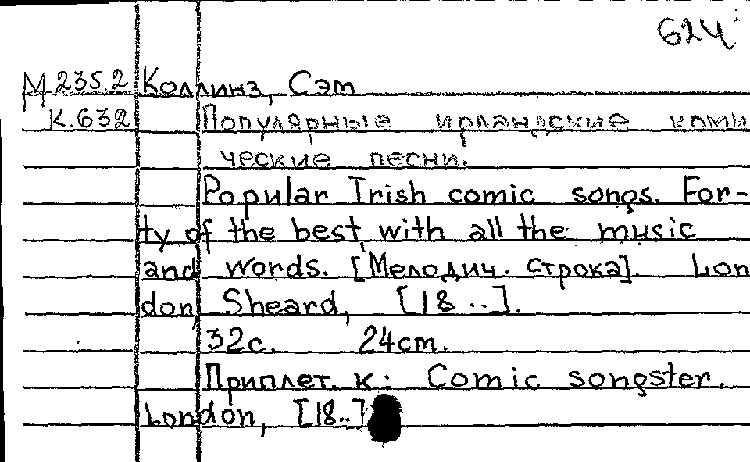 624
М 235.2 Коллинз, Сэм
К.632 Популярные ирландские коми
ческие песни.
Popular Irish comic songs. For-
ty of the best with all the music
and words. [Мелодич. строка]. Lon
don, Sheard, [18 ..].
32с. 24cm.
Приплет. к: Comic songster.
London, [18..]